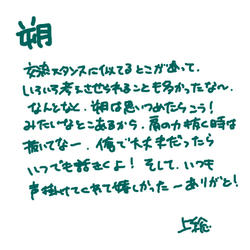 朔
交流スタンスに似てるとこがあって、
いろいろ考えさせられることも多かったな〜。
なんとなく、朔は思いつめたらこう!
みたいなとこあるから、肩の力抜く時は
抜いてなー。俺で大丈夫だったら
いつでも話きくよ! そして、いつも
声掛けてくれて嬉しかったーありがと!